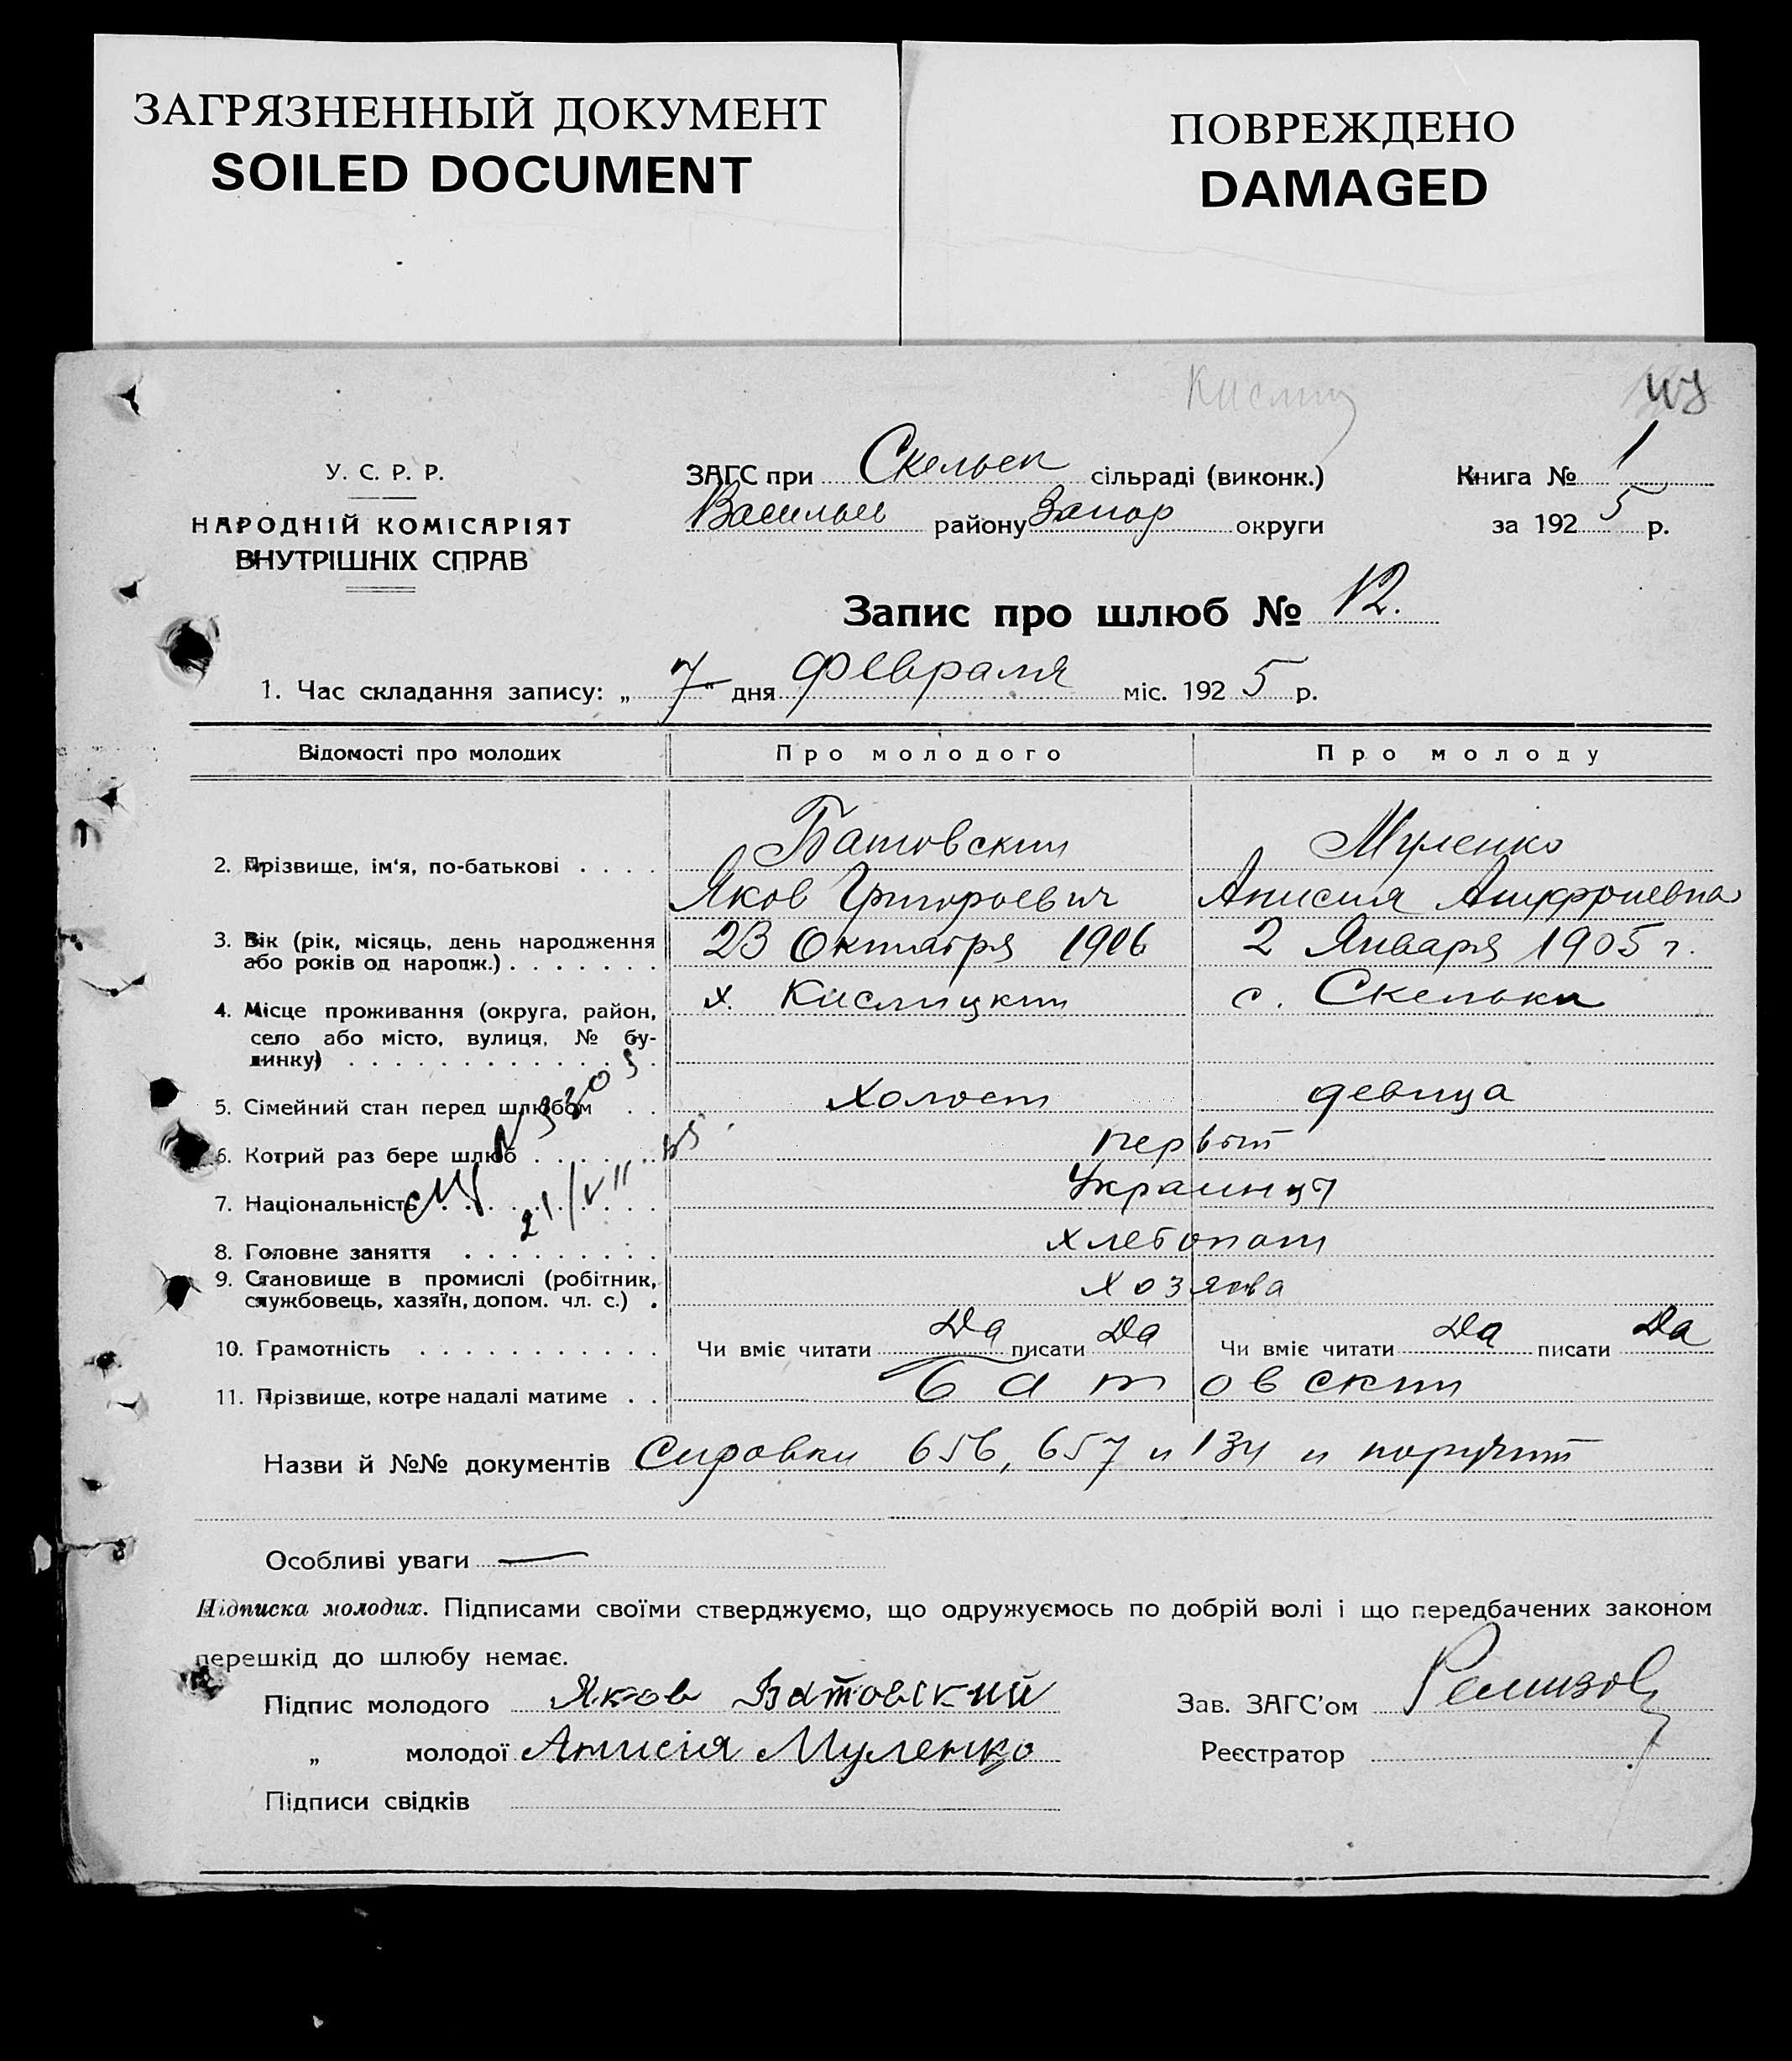 ЗАГРЯЗНЕННЫЙ ДОКУМЕНТ
SOILED DOCUMENT
ПОВРЕЖДЕНО
DAMAGED
У. С. Р. Р.
НАРОДНІЙ КОМІСАРІЯТ
ВНУТРІШНІХ СПРАВ
ЗАГС при Скельск сільраді (виконк.)
Васильев району Запор округи
Книга № 1
за 1925 р.
Запис про шлюб № 12.
1. Час складання запису: „7“ дня февраля міс. 1925 р.
Відомості про молодих Про молодого Про молоду
2. Прізвище, ім'я, по-батькові . . . . Батовский Муленко
Яков Григорьевич Анисия
3. Вік (рік, місяць, день народження 23 Октября 1906 2 Января 1905 г.
або років од народж.) . . . . . . .
4. Місце проживання (округа, район, х. Кислицкий с. Скельки
село або місто, вулиця, № бу-
динку) . . . . . . . . . . . . .
5. Сімейний стан перед шлюбом . . Холост девица
6. Котрий раз бере шлюб . . . . . . первый
7. Національність . . . . . . . . . Украинцы
21/VII
8. Головне заняття . . . . . . . . . хлебопаш
9. Становище в промислі (робітник, хозяева
службовець, хазяїн, допом. чл. с.) .
10. Грамотність . . . . . . . . . . . Чи вміє читати Да писати Да Чи вміє читати Да писати Да
11. Прізвище, котре надалі матиме . . Батовский
Назви й №№ документів Справки 656, 657 и 134 и
Особливі уваги —
Підписка молодих. Підписами своїми стверджуємо, що одружуємось по добрій волі і що передбачених законом
перешкід до шлюбу немає.
Підпис молодого Яков Батовский Зав. ЗАГС'ом Ремизов
„ молодої Анисія Муленко Реєстратор
Підписи свідків